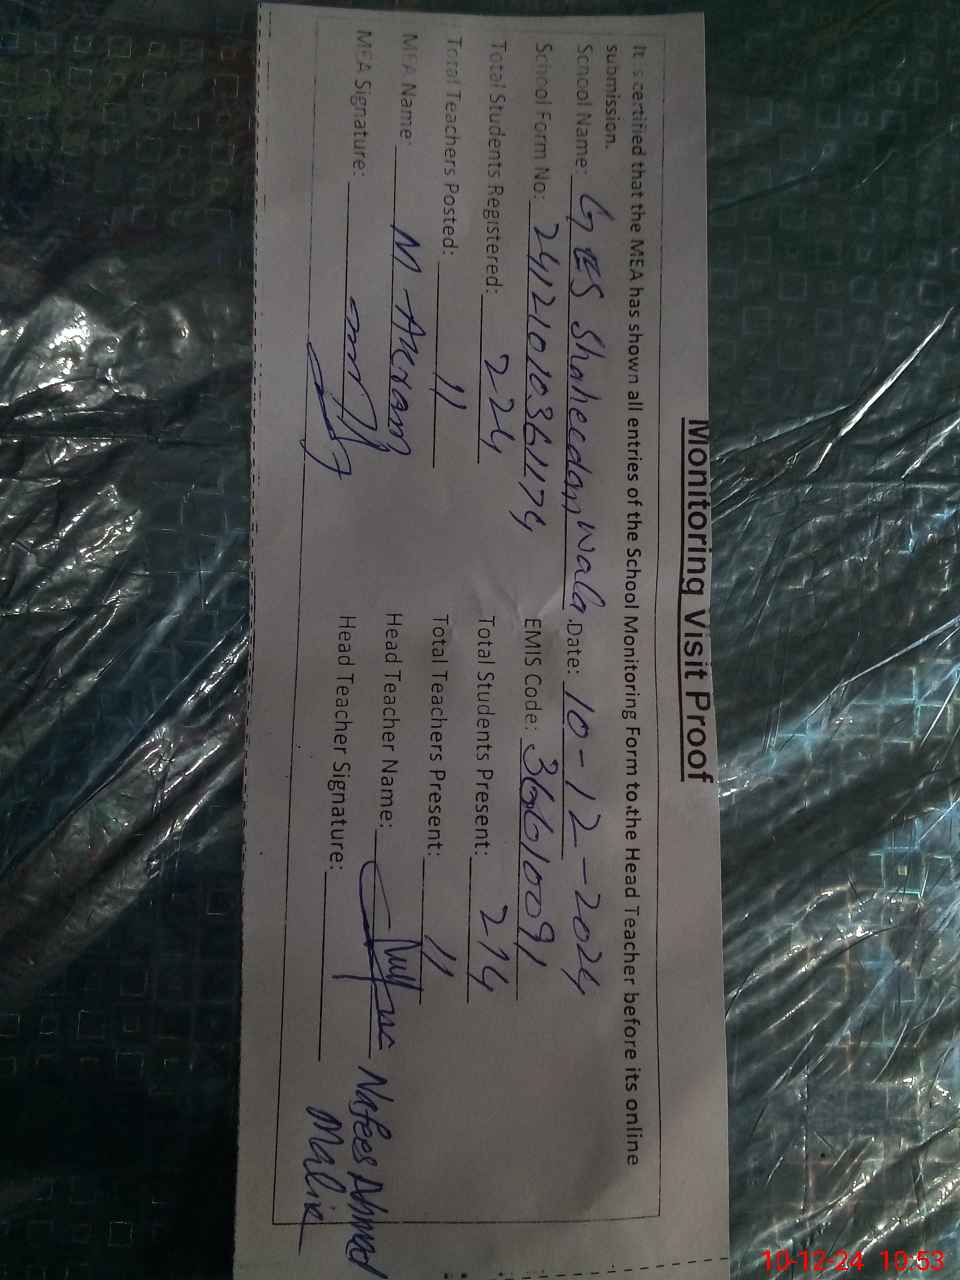 Monitoring Visit Proof
It is certified that the MEA has shown all entries of the School Monitoring Form to the Head Teacher before its online
submission.
School Name: GES Shaheedanwala Date: 10-12-2024
School Form No: EMIS Code: 36610091
Total Students Registered: 224 Total Students Present: 214
Total Teachers Posted: 11 Total Teachers Present: 11
MEA Name: M. Akram Head Teacher Name: Nafees Ahmad
Malik
MEA Signature: Head Teacher Signature:
10-12-24 10:53